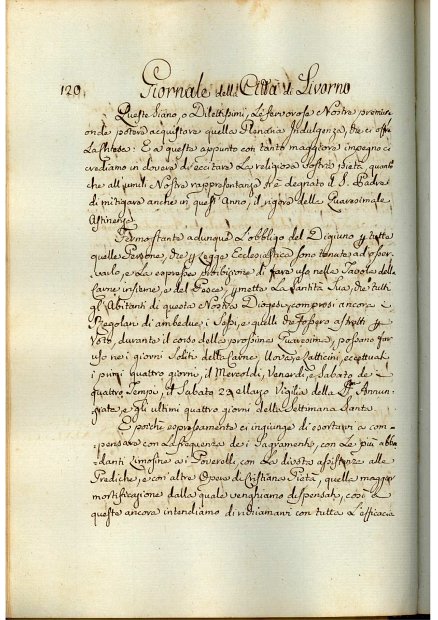 120. Giornale della Città di Livorno
Queste siano, o Dilettissimi, Le fervorose Nostre premure
onde potere acquistare quella Plenaria Indulgenza, che ci offre
La Chiesa: E a queste appunto con tanto maggiore impegno ci
crediamo in dovere d'eccitare La religiosa Vostra pietà, quanto
che all'umili Nostre rappresentanze si è degnato il S. Padre
di mitigare anche in quest'Anno, il rigore della Quaresimale
Astinenza.
Fermo stante adunque L'obbligo del Digiuno p tutte
quelle Persone, che p Legge Ecclesiastica sono tenute ad osser-
varlo, e La espressa proibizione di fare uso nelle Tavole della
Carne insieme, e del Pesce, pmette La Santità Sua, che tutti
gl'Abitanti di questa Nostra Diogesi, compresi ancora i
Regolari di ambedue i Sessi, e quelli che fossero astretti p
Voto, durante il corso della prossima Quaresima, possano far
uso nei giorni Soliti della Carne, Uova, e Latticini, eccettuati
i primi quattro giorni, il Mercoldì, Venerdì, e Sabato de
quattro Tempi, il Sabato 24 Marzo Vigilia della SS. Annun-
ziata, e gli ultimi quattro giorni della Settimana Santa.
E perchè espressamente ci ingiunge di esortarvi a com-
-pensare con La frequenza dei Sagramenti, con Le più abbon
-danti Limosine ai Poverelli, con La divota assistenza alle
Prediche, e con altre Opere di Cristiana Pietà, quella maggior
mortificazione dalla quale venghiamo dispensati, così a
queste ancora intendiamo di richiamarvi con tutta L'efficacia